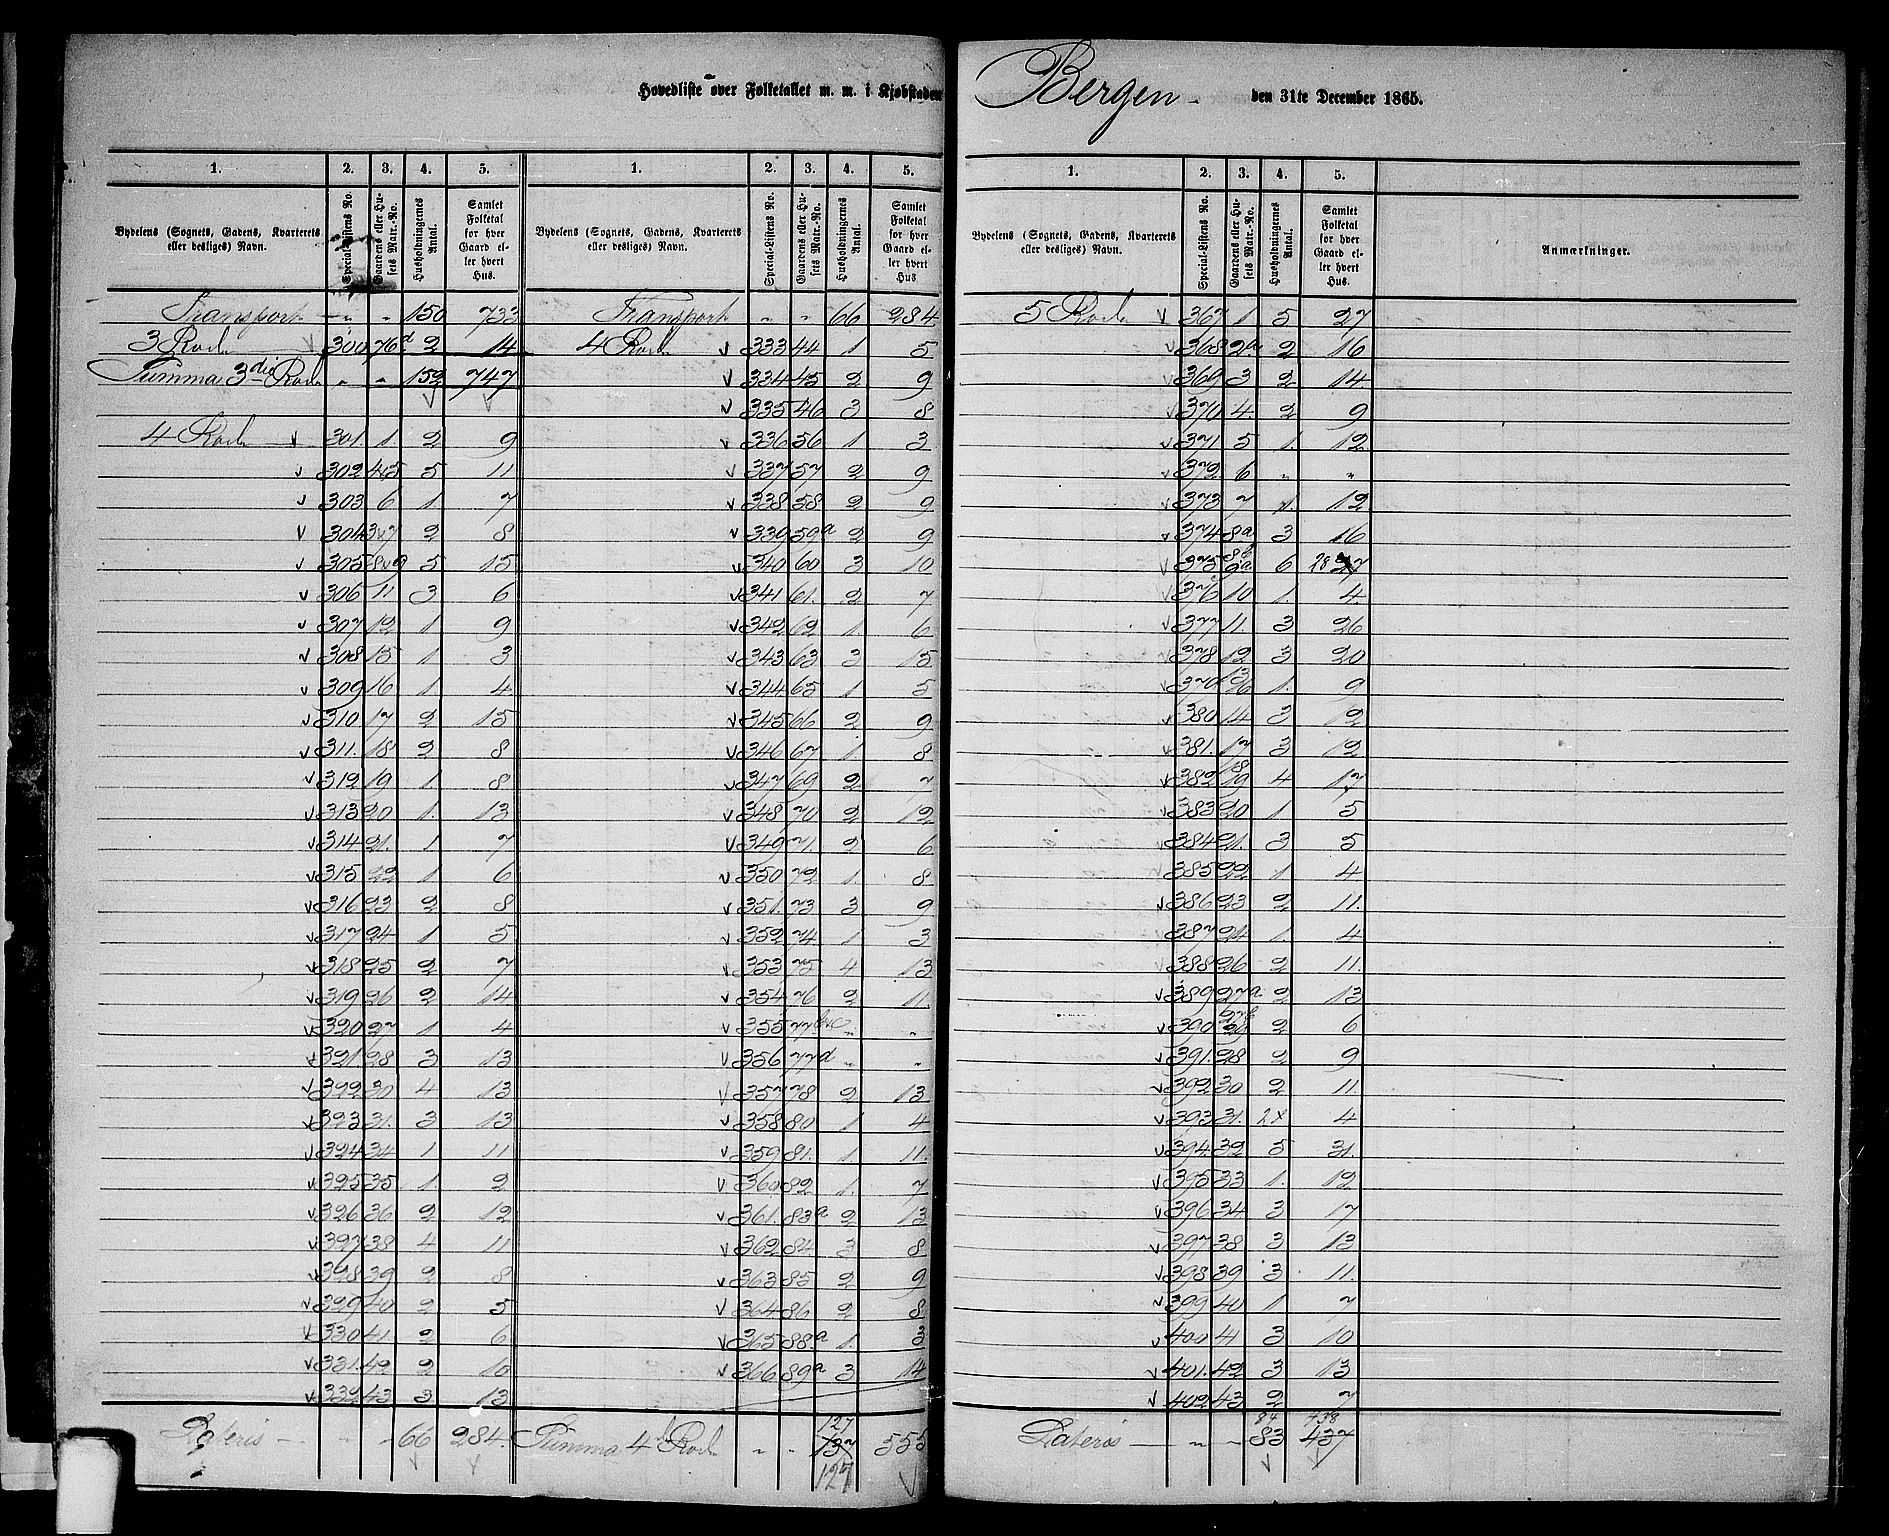 Hovedliste over Folketallet m. m. i Kjøbstaden Bergen den 31te December 1865.
1. 2. 3. 4. 5.
Bydelens (Sognets, Gadens, Kvarterets eller desliges) Navn. Special-Listens No. Gaardens eller Husets Matr.-No. Husholdningernes Antal. Samlet Folketal for hver Gaard eller hvert Hus.
Transport " " 150 733
3 Rode 300 76d 2 14
Summa 3die Rode " " 152 747
4 Rode 301. 1. 2 9
302 4&5 5 11
303 6 1 7
304 3&7 2 8
305 8&9 5 15
306 11 3 6
307 12 1 9
308 15 1 3
309 16 1. 4
310 17 2 15
311. 18 2 8
312 19 1 8
313 20 1. 13
314 21. 1 7
315 22 1 6
316 23 2 8
317 24 1 5
318 25 2 7
319 26 2 14
320 27 1 4
321 28 3 13
322 30 4 13
323 31. 3 13
324 34 1 11
325 35 1. 2
326 36 2 12
327 38 4 11
328 39 2 8
329 40 2 5
330 41 2 6
331. 42 2 10
332 43 3 13
Lateris " " 66 284.
1. 2. 3. 4. 5.
Bydelens (Sognets, Gadens, Kvarterets eller desliges) Navn. Special-Listens No. Gaardens eller Husets Matr.-No. Husholdningernes Antal. Samlet Folketal for hver Gaard eller hvert Hus
Transport " " 66 284
4 Rode 333 44 1 5
334 45 2 9
335 46 3 8
336 56 1 3
337 57 2 9
338 58 2 9
339 59a 2 9
340 60 3 10
341 61. 2 7
342 62 1. 6
343 63 3 15
344 65 1 5
345 66 2 9
346 67 1. 8
347 69 2 7
348 70 2 12
349 71 2 6
350 72 1. 8
351. 73 3 9
352 74 1 3
353 75 4 13
354 76 2 11.
355 77b&c " "
356 77d " "
357 78 2 13
358 80 1 4
359 81. 1. 11.
360 82 1. 7
361. 83a 2 13
362 84 3 8
363 85 2 9
364 86 2 8
365 88a 1. 3
366 89a 3 14
127
Summa 4de Rode " " 137 555
127
1. 2. 3. 4. 5.
Bydelens (Sognets, Gadens, Kvarterets eller desliges) Navn. Special-Listens No. Gaardens eller Husets Matr.-No. Husholdningernes Antal. Samlet Folketal for hver Gaard eller hvert Hus. Anmærkninger.
5 Rode 367 1 5 27
368 2a 2 16
369 3 2 14
370 4. 2 9
371 5 1. 12
372 6 " "
373 7 1. 12
374 8a 3 16
375 8b 9a 6 28 27
376 10 1. 4.
377 11. 3 26
378 12 3 20
379 13 26 1. 9
380 14 3 12
381. 17 3 12
382 18 19 4 17
383 20 1 5
384 21. 3 5
385 22 1 4
386 23 2 11.
387 24 1. 4
388 26 2 11.
389 27a 2 13
390 27b 29 2 6
391. 28 2 9
392 30 2 11.
393 31. 2x 4
394 32 5 31
395 33 1. 12
396 34 3 17
397 38 3 13
398 39 3 11.
399 40 1 7
400 41 3 10
401. 42 3 13
402 43 2 7
84 438
Lateris " " 83 437